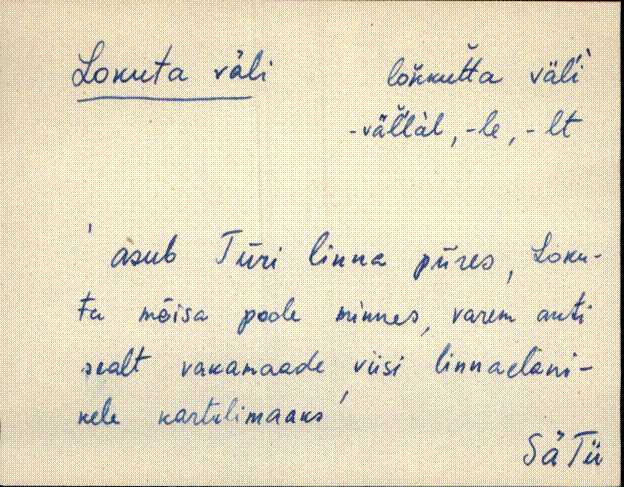 Lokuta väli lok̆kut̆ta väl'i
-väl̆làl, -le, -lt
' asub Türi linna piires, Loku-
ta mõisa poole minnes, varem anti
sealt vakamaade viisi linnaelani-
kele kartulimaaks '
SäTü